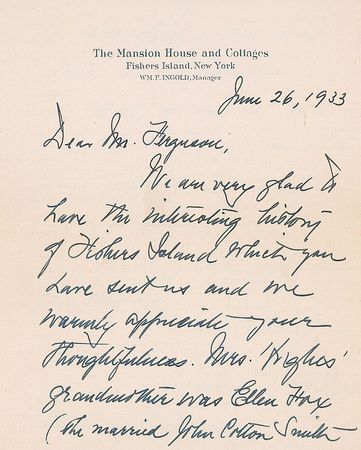 The Mansion House and Cottages
Fishers Island, New York
WM. F. INGOLD, Manager
June 26, 1933
Dear Mr. Ferguson,
We are very glad to
have the interesting history
of Fishers Island which you
have sent us and we
warmly appreciate your
thoughtfulness. Mrs. Hughes'
grandmother was Ellen Fox
(she married John Cotton Smith